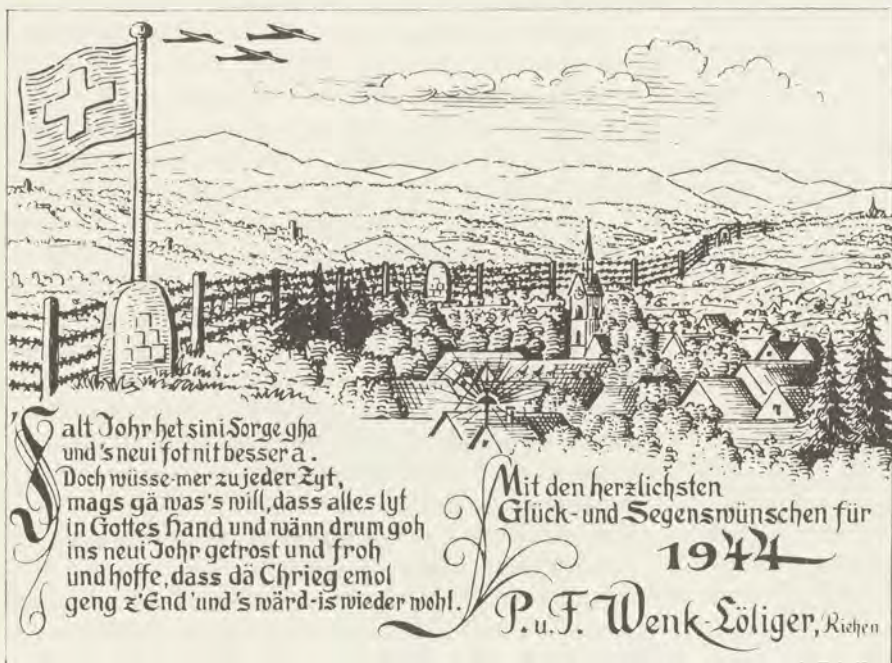 'S alt Johr het sini Sorge gha
und 's neui fot nit besser a.
Doch wüsse-mer zu jeder Zyt,
mags gä was 's will, dass alles lyt
in Gottes Hand und wänn drum goh
ins neui Johr getrost und froh
und hoffe, dass dä Chrieg emol
geng z'End' und 's wärd-is wieder wohl.
Mit den herzlichsten
Glück- und Segenswünschen für
1944
P. u. F. Wenk-Löliger, Riehen